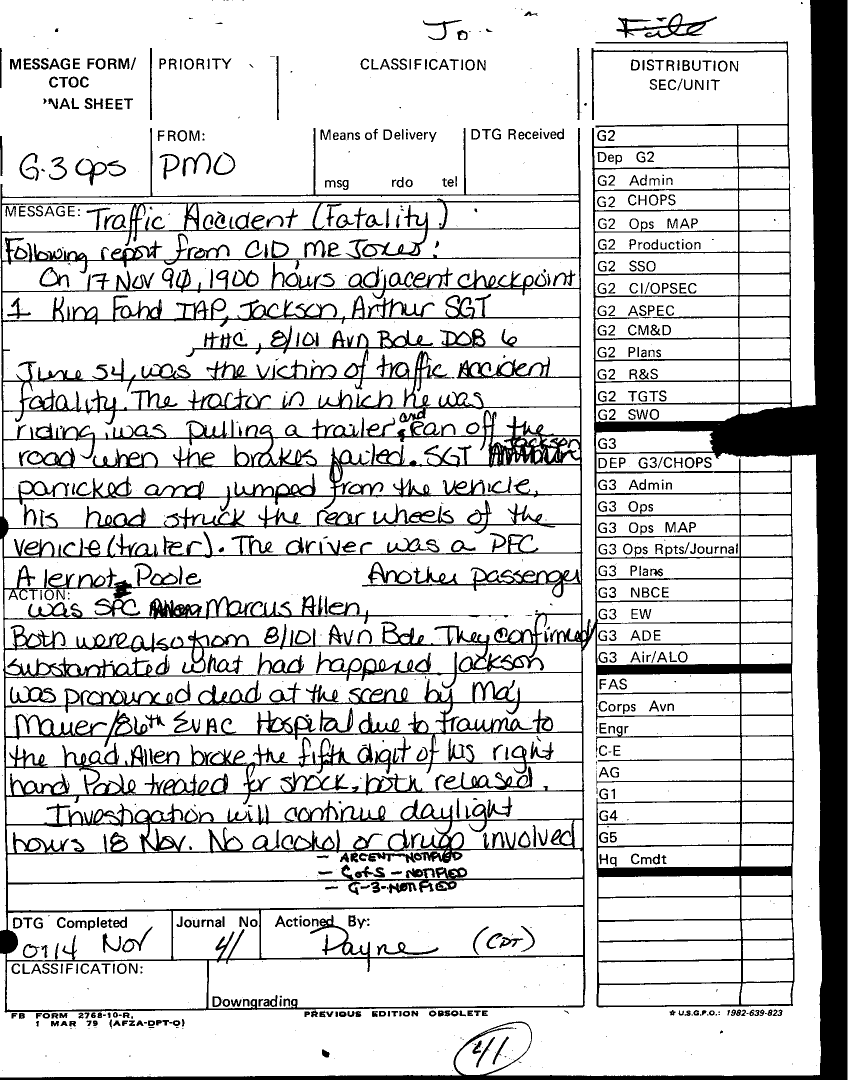 To
File
MESSAGE FORM/
CTOC
NAL SHEET
PRIORITY
CLASSIFICATION
G-3 Ops
FROM:
PMO
Means of Delivery
msg rdo tel
DTG Received
MESSAGE: Traffic Accident (Fatality)
Following report from CID, Mr Jones:
On 17 Nov 90, 1900 hours adjacent checkpoint
1 King Fahd IAP, Jackson, Arthur SGT
, HHC, 8/101 Avn Bde DOB 6
June 54, was the victim of traffic accident
fatality. The tractor in which he was
riding, was pulling a trailer and ran off the
road when the brakes failed. SGT Jackson
panicked and jumped from the vehicle,
his head struck the rear wheels of the
vehicle (trailer). The driver was a PFC
Poole Another passenger
ACTION:
was SPC Marcus Allen,
Both were also from 8/101 Avn Bde. They confirmed/
substantiated what had happened. Jackson
was pronounced dead at the scene by Maj
Mauer/86th EVAC Hospital due to trauma to
the head. Allen broke the fifth digit of his right
hand, Poole treated for shock, both released.
Investigation will continue daylight
hours 18 Nov. No alcohol or drugs involved
- ARCENT NOTIFIED
- C of S - NOTIFIED
- G-3-NOTIFIED
DTG Completed
0114 Nov
Journal No
41
Actioned By:
Payne (CPT)
CLASSIFICATION:
Downgrading
FB FORM 2768-10-R,
1 MAR 79 (AFZA-DPT-O)
PREVIOUS EDITION OBSOLETE
41
DISTRIBUTION
SEC/UNIT
G2
Dep G2
G2 Admin
G2 CHOPS
G2 Ops MAP
G2 Production
G2 SSO
G2 CI/OPSEC
G2 ASPEC
G2 CM&D
G2 Plans
G2 R&S
G2 TGTS
G2 SWO
G3
DEP G3/CHOPS
G3 Admin
G3 Ops
G3 Ops MAP
G3 Ops Rpts/Journal
G3 Plans
G3 NBCE
G3 EW
G3 ADE
G3 Air/ALO
FAS
Corps Avn
Engr
C-E
AG
G1
G4
G5
Hq Cmdt
☆ U.S.G.P.O.: 1982-639-823